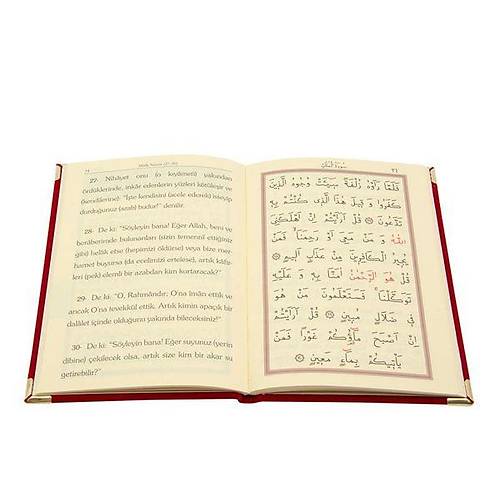 Mülk Sûresi (27-30)
27- Nihâyet onu (o kıyâmeti) yakından
gördüklerinde, inkâr edenlerin yüzleri kötüleşir ve
(kendilerine): "İşte kendisini (acele ederek) isteyip
durduğunuz (azab) budur!" denilir.
28- De ki: "Söyleyin bana! Eğer Allah, beni ve
berâberimde bulunanları (sizin temennî ettiğiniz
gibi) helâk etse (hepimizi öldürse) veya bize mer-
hamet buyursa (da ecelimizi ertelese), artık kâfir-
leri (pek) elemli bir azabdan kim kurtaracak?"
29- De ki: "O, Rahmândır; O'na îmân ettik ve
ancak O'na tevekkül ettik. Artık kimin apaçık bir
dalâlet içinde olduğunu yakında bileceksiniz!"
30- De ki: "Söyleyin bana! Eğer suyunuz (yerin
dibine) çekilecek olsa, artık size kim bir akar su
getirebilir?"
سُورَةُ الْمُلْكِ
٢١
فَلَمَّا رَاَوْهُ زُلْفَةً سٖٓيـَٔتْ وُجُوهُ الَّذٖينَ
كَفَرُوا وَ قٖيلَ هٰذَا الَّذٖى كُنْتُمْ بِهٖ
تَدَّعُونَ ۞ قُلْ اَرَاَيْتُمْ اِنْ اَهْلَكَنِىَ
اللّٰهُ وَ مَنْ مَعِىَ اَوْ رَحِمَنَا ۙ فَمَنْ
يُجٖيرُ الْكَافِرٖينَ مِنْ عَذَابٍ اَلٖيمٍ ۞
قُلْ هُوَ الرَّحْمٰنُ اٰمَنَّا بِهٖ وَ عَلَيْهِ
تَوَكَّلْنَا ۚ فَسَتَعْلَمُونَ مَنْ هُوَ
فٖى ضَلَالٍ مُبٖينٍ ۞ قُلْ اَرَاَيْتُمْ
اِنْ اَصْبَحَ مَٓاؤُ۬كُمْ غَوْرًا فَمَنْ
يَاْتٖيكُمْ بِمَٓاءٍ مَعٖينٍ ۞